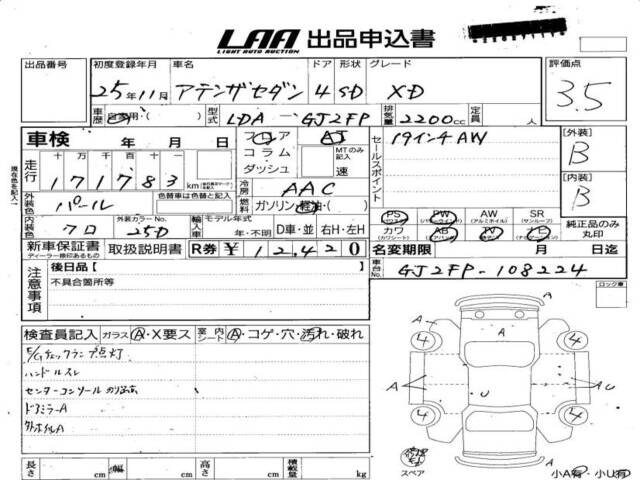 LAA 出品申込書
LIGHT AUTO AUCTION
出品番号 初度登録年月 車名 ドア 形状 グレード 評価点
25年11月 アテンザセダン 4 SD XD 3.5
車歴 自家用・( ) 型式 LDA - GJ2FP 排気量 2200cc 定員 人
車検 年 月 日 フロア AT 19インチAW [外装]
コラム MTのみ記入 セールスポイント B
走行 十万千百十一 ダッシュ 速
171783 km 冷房 AAC [内装]
外装色 パール 色替車は色替と記入 燃料 ガソリン・軽油・( ) B
PS PW AW SR
(パワステ) (パワーウインドウ) (アルミホイル) (サンルーフ)
内装色 クロ 外装カラーNo. 25D 輸入車 モデル年式 年・不明 D車・並 右H・左H
カワ AB TV ナビ 純正品のみ丸印
(カワシート) (エアバッグ)
新車保証書 取扱説明書 R券 ¥ 12,420 名変期限 月 日迄
ディーラー捺印あるもの
車台No. GJ2FP-108224
注意事項 後日品【 】 ロック車
不具合箇所等
検査員記入 ガラス A・X要ス 室内シート A・コゲ・穴・汚れ・破れ
E/Gチェックランプ点灯
ハンドルスレ
センターコンソール
ドアミラーA
外ホイルA
A
A
A
4 4
A U A U
A
4 4
A
スペア
長さ cm 幅 cm 高さ cm 積載量 kg 小A有・小U有
現在色を記入